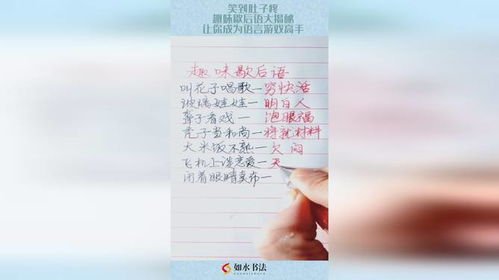 笑到肚子疼
趣味歇后语大揭秘
让你成为语言游戏高手
趣味歇后语
叫花子唱歌—穷快活
玻璃娃娃—明白人
聋子看戏—饱眼福
秃子当和尚—将就材料
大米饭不熟—欠闷
飞机上谈恋爱—天
闭着眼睛卖布—
如水书法